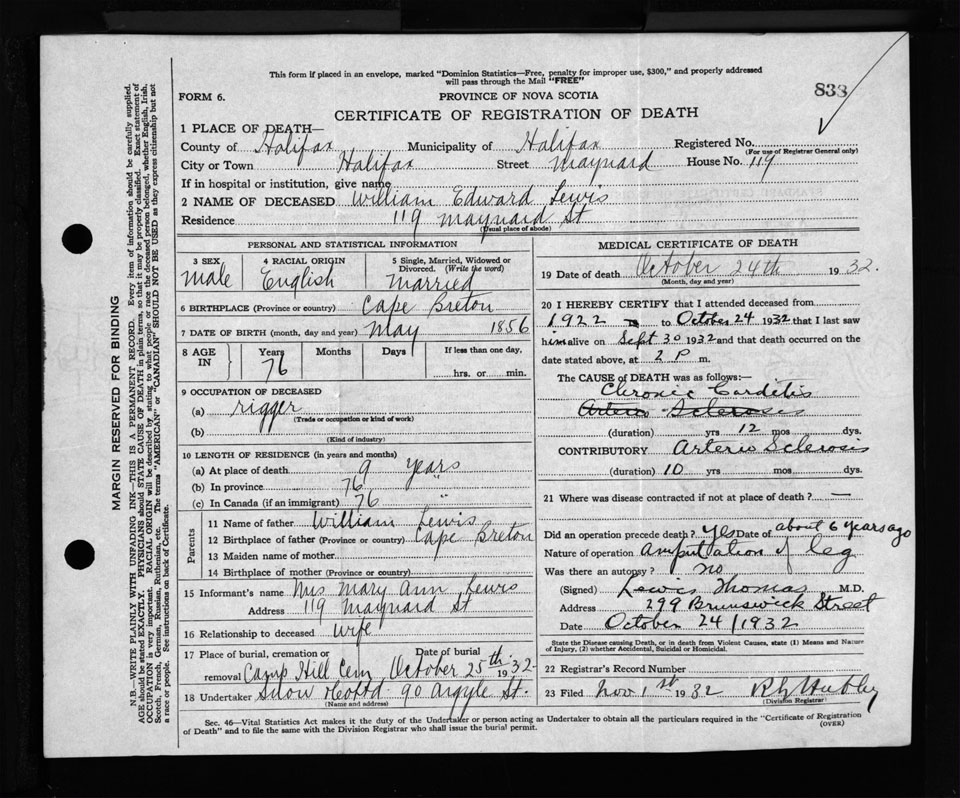 This form if placed in an envelope, marked "Dominion Statistics—Free, penalty for improper use, $300," and properly addressed
will pass through the Mail "FREE"
FORM 6.
PROVINCE OF NOVA SCOTIA
838
CERTIFICATE OF REGISTRATION OF DEATH
1 PLACE OF DEATH—
County of Halifax Municipality of Halifax Registered No.
(For use of Registrar General only)
City or Town Halifax Street Maynard House No. 119
If in hospital or institution, give name
2 NAME OF DECEASED William Edward Lewis
Residence 119 Maynard St
(Usual place of abode)
PERSONAL AND STATISTICAL INFORMATION
3 SEX 4 RACIAL ORIGIN 5 Single, Married, Widowed or
Divorced. (Write the word)
Male English Married
6 BIRTHPLACE (Province or country) Cape Breton
7 DATE OF BIRTH (month, day and year) May 1856
8 AGE IN Years Months Days If less than one day,
76 hrs. or min.
9 OCCUPATION OF DECEASED
(a) rigger
(Trade or occupation or kind of work)
(b)
(Kind of industry)
10 LENGTH OF RESIDENCE (in years and months)
(a) At place of death 9 years
(b) In province 76 "
(c) In Canada (if an immigrant) 76 "
Parents
11 Name of father William Lewis
12 Birthplace of father (Province or country) Cape Breton
13 Maiden name of mother
14 Birthplace of mother (Province or country)
15 Informant's name Mrs Mary Ann Lewis
Address 119 Maynard St
16 Relationship to deceased wife
17 Place of burial, cremation or Date of burial
removal Camp Hill Cem October 25th 1932
18 Undertaker Snow 90 Argyle St.
(Name and address)
MEDICAL CERTIFICATE OF DEATH
19 Date of death October 24th 1932.
(Month, day and year)
20 I HEREBY CERTIFY that I attended deceased from
1922 to October 24 1932 that I last saw
him alive on Sept 30 1932 and that death occurred on the
date stated above, at 2 P m.
The CAUSE OF DEATH was as follows:
Chronic Carditis
Arterio Sclerosis
(duration) yrs 12 mos dys.
CONTRIBUTORY Arterio Sclerosis
(duration) 10 yrs mos dys.
21 Where was disease contracted if not at place of death? —
Did an operation precede death? yes Date of about 6 years ago
Nature of operation amputation of leg
Was there an autopsy? no
(Signed) Lewis Thomas M.D.
Address 299 Brunswick Street
Date October 24/1932
State the Disease causing Death, or in death from Violent Causes, state (1) Means and Nature
of Injury, (2) whether Accidental, Suicidal or Homicidal.
22 Registrar's Record Number
23 Filed Nov 1st 1932
(Division Registrar)
Sec. 46—Vital Statistics Act makes it the duty of the Undertaker or person acting as Undertaker to obtain all the particulars required in the "Certificate of Registration
of Death" and to file the same with the Division Registrar who shall issue the burial permit.
(OVER)
MARGIN RESERVED FOR BINDING
N.B.—WRITE PLAINLY WITH UNFADING INK—THIS IS A PERMANENT RECORD. Every item of information should be carefully supplied.
AGE should be stated EXACTLY. PHYSICIANS should STATE CAUSE OF DEATH in plain terms, so that it may be properly classified. Exact statement of
OCCUPATION is very important. RACIAL ORIGIN will be described by stating to what people or race the deceased person belonged, whether English, Irish,
Scotch, French, German, Russian, Ruthenian, etc. The terms "AMERICAN" or "CANADIAN" SHOULD NOT BE USED as they express citizenship but not
a race or people. See instructions on back of Certificate.